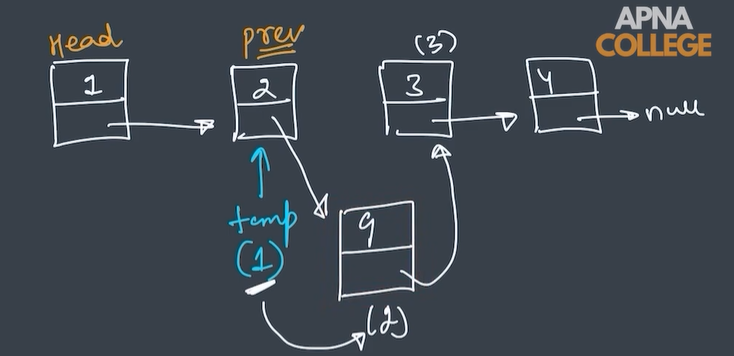 APNA
COLLEGE
Head
prev
(3)
1
2
3
4
null
temp
(1)
9
(2)